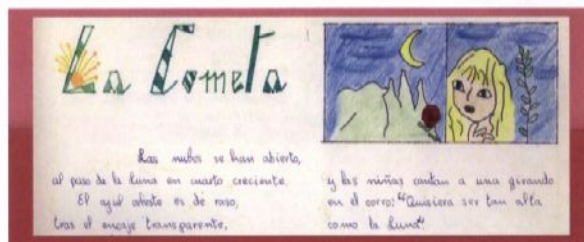 La Cometa
Las nubes se han abierto,
al paso de la luna en cuarto creciente.
El azul celeste es de raso,
tras el encaje transparente,
y las niñas cantan a una girando
en el corro: "Quisiera ser tan alta
como la luna".